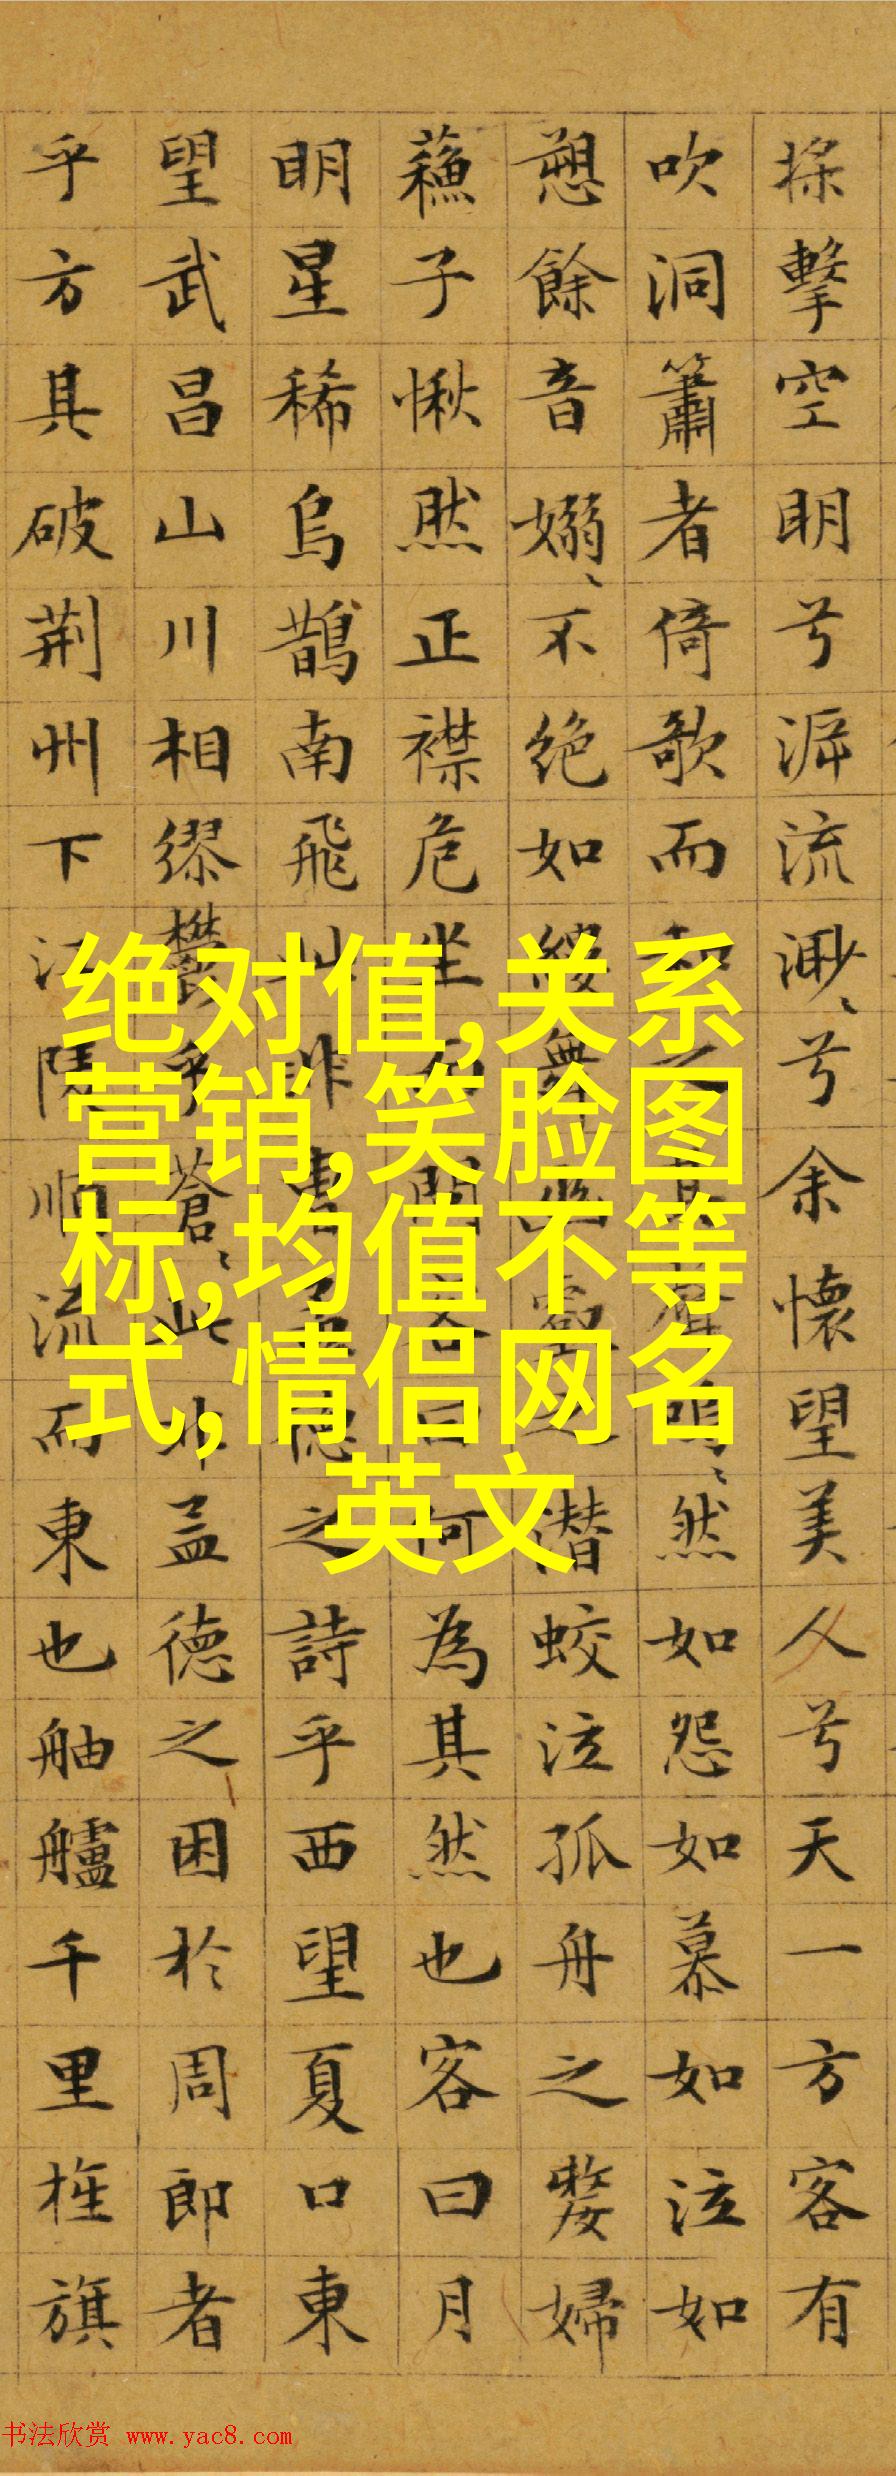 擊空明兮泝流渺〻兮余懷望美人兮天一方客有
吹洞簫者倚歌而和之其聲嗚〻然如怨如慕如泣如
愬餘音嫋〻不絶如縷舞幽壑之潛蛟泣孤舟之嫠婦
蘓子愀然正襟危坐而問客曰何為其然也客曰月
明星稀烏鵲南飛此非曹孟德之詩乎西望夏口東
望武昌山川相繆鬱乎蒼〻此非孟德之困於周郎者
乎方其破荆州下江陵順流而東也舳艫千里旌旗
绝对值,关系
营销,笑脸图
标,均值不等
式,情侣网名
英文
书法欣赏 www.yac8.com